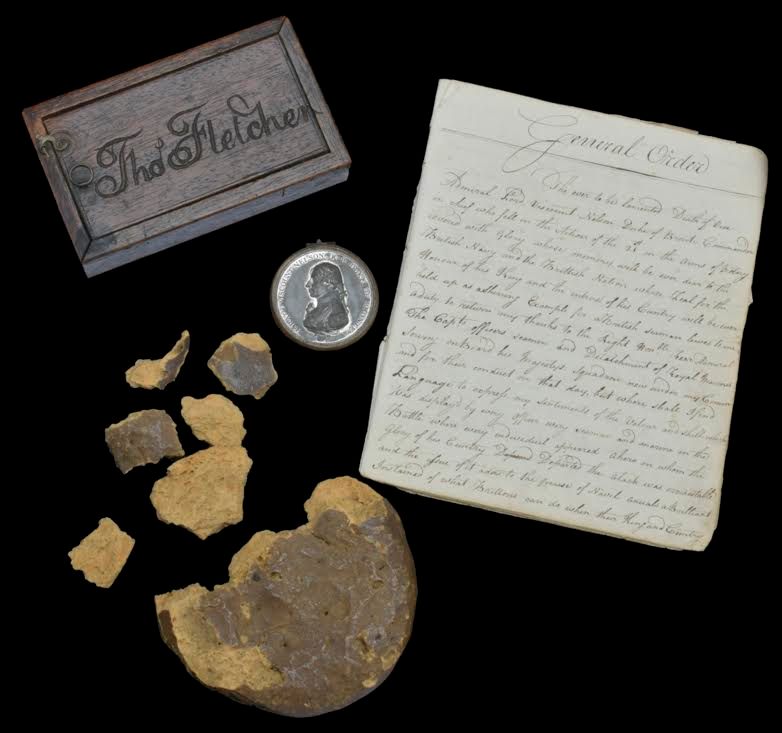 Thos Fletcher
General Order
The ever to be lamented Death of
Admiral Lord Viscount Nelson Duke of Bronte Commander
in Chief who fell in the Action of the 21st in the Arms of Victory
covered with Glory whose memory will be ever dear to the
British Navy and the Brittish Nation whose Zeal for the
Honour of his King and the interest of his Country will be ever
held up as a Shining Example for a Brittish Seaman leaves to me
a duty to return my thanks to the Right Honble Rear Admiral
The Capts officers seamen and Detatchment of Royal Marines
Serving onBoard his Majestys Squadron now under my Command
and for their conduct on that day, but where shall I find
Language to express my sentiments of the Valour and skill which
Was displayd by every officer every seamen and marine in the
Battle where every individual appeared a hero on whom the
Glory of his Country Depended the attack was irresistable
and the of it adds to the of Naval a Brilliant
Instance of what Brittons can do when their King and Country